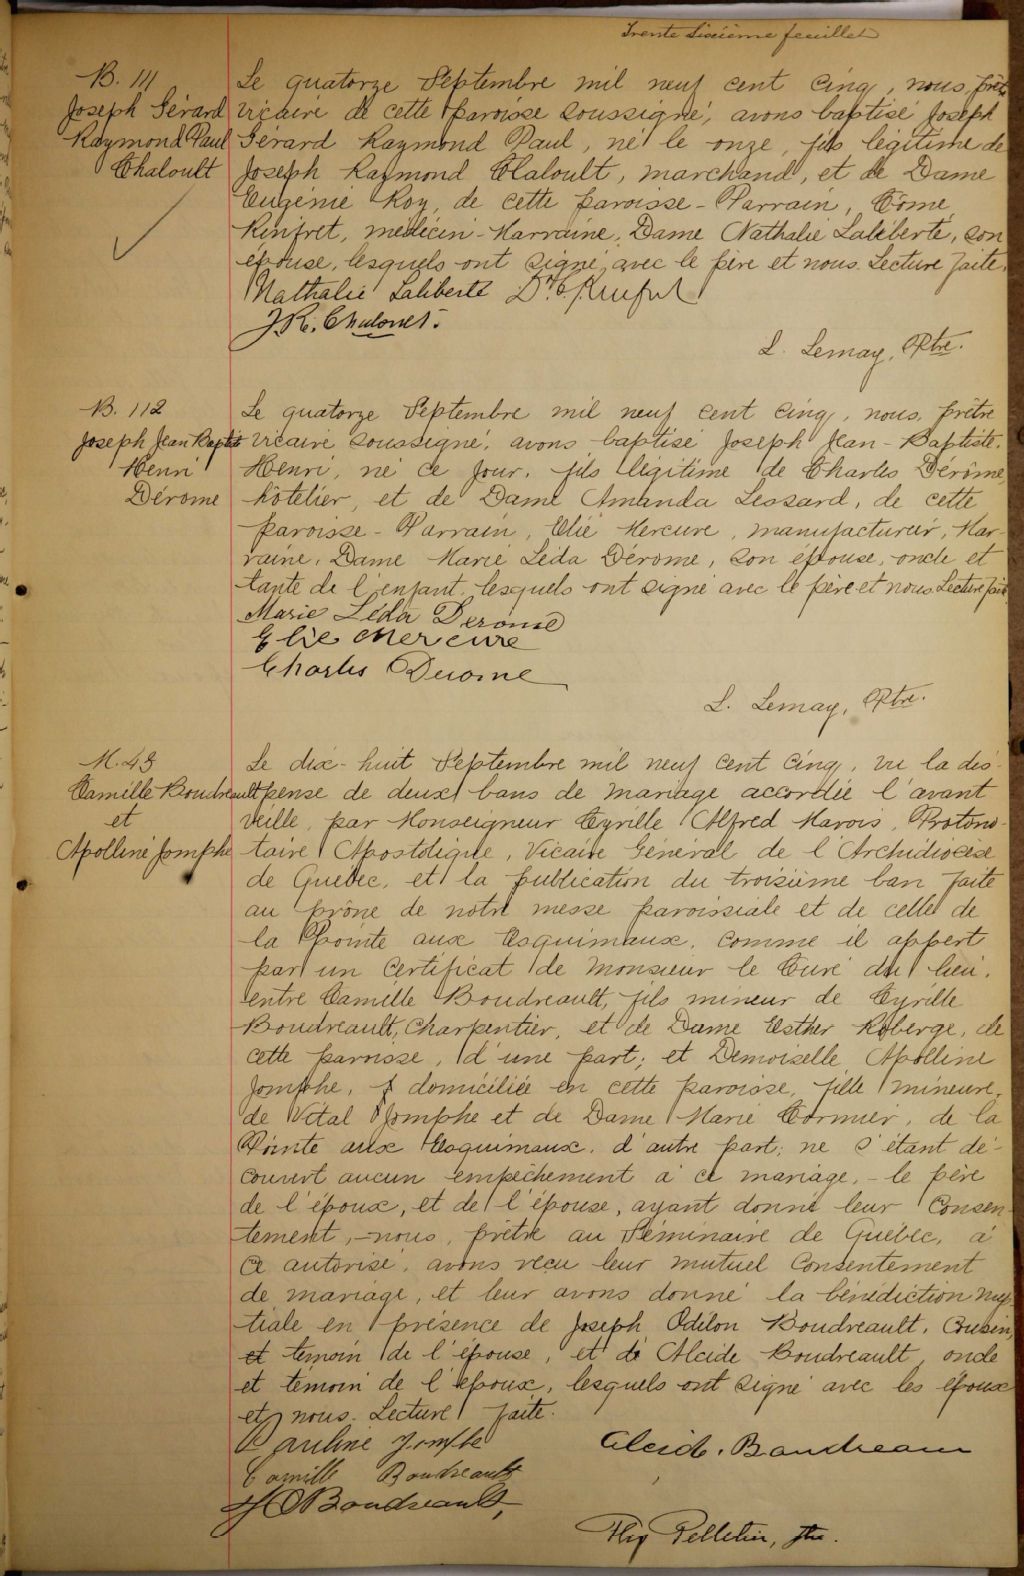 Trente Sixième feuillet
B. 111
Joseph Gérard
Raymond Paul
Chaloult
Le quatorze Septembre mil neuf cent cinq, nous, prêt.
vicaire de cette paroisse soussigné, avons baptisé Joseph
Gérard Raymond Paul, né le onze, fils légitime de
Joseph Raymond Chaloult, marchand, et de Dame
Eugénie Roy, de cette paroisse - Parrain, Côme
Rinfret, médecin - Marraine, Dame Nathalie Laliberté, son
épouse, lesquels ont signé avec le père et nous. Lecture faite.
Nathalie Laliberté Dr C. Rinfret
J. R. Chaloult.
L. Lemay, Ptre.
B. 112
Joseph Jean Baptist
Henri
Dérome
Le quatorze Septembre mil neuf cent cinq, nous, prêtre
vicaire soussigné, avons baptisé Joseph Jean-Baptiste.
Henri, né ce jour, fils légitime de Charles Dérôme,
hôtelier, et de Dame Amanda Lessard, de cette
paroisse - Parrain, Elie Mercure, manufacturier, Mar-
raine, Dame Marie Léda Dérome, son épouse, oncle et
tante de l'enfant, lesquels ont signé avec le père et nous. Lecture faite
Marie Léda Derome
Elie Mercure
Charles Derome
L. Lemay, Ptre.
M. 43
Camille Boudreault
et
Apolline Jomphe
Le dix-huit Septembre mil neuf cent cinq, vu la dis-
pense de deux bans de mariage accordée l'avant
veille, par Monseigneur Cyrille Alfred Marois, Protono-
taire Apostolique, Vicaire Général de l'Archidiocèse
de Québec, et la publication du troisième ban faite
au prône de notre messe paroissiale et de celle de
la Pointe aux Esquimaux, comme il appert
par un certificat de Monsieur le Curé du lieu,
entre Camille Boudreault, fils mineur de Cyrille
Boudreault, Charpentier, et de Dame Esther Roberge, de
cette paroisse, d'une part; et Demoiselle Apolline
Jomphe, domiciliée en cette paroisse, fille mineure,
de Vital Jomphe et de Dame Marie Cormier, de la
Pointe aux Esquimaux, d'autre part; ne s'étant dé-
couvert aucun empêchement à ce mariage, - le père
de l'époux, et de l'épouse, ayant donné leur consen-
tement, - nous, prêtre au Séminaire de Québec, à
ce autorisé, avons reçu leur mutuel consentement
de mariage, et leur avons donné la bénédiction nup-
tiale en présence de Joseph Odilon Boudreault, Cousin,
et témoin de l'épouse, et de Alcide Boudreault, oncle
et témoin de l'époux, lesquels ont signé avec les époux
et nous. Lecture faite.
Pauline Jomphe Alcide. Boudreau
Camille Boudreault
J O Boudreault,
Pelletier, ptre.